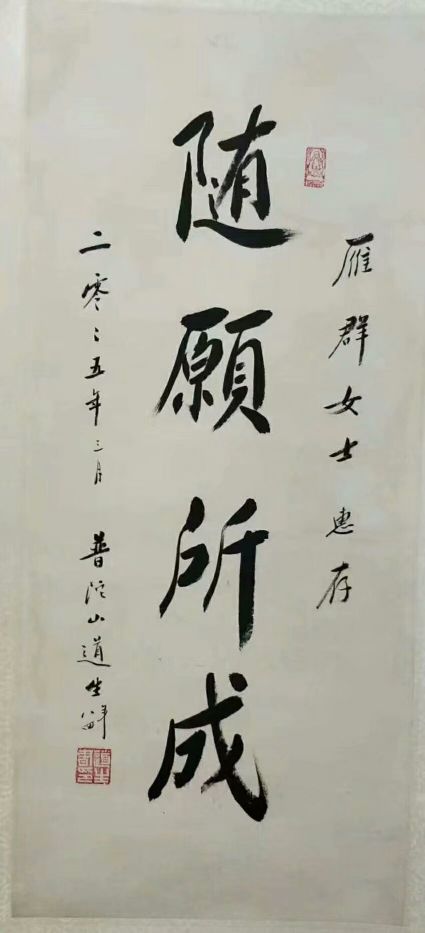 雁群女士惠存
随願所成
二零〻五年三月 普陀山道生